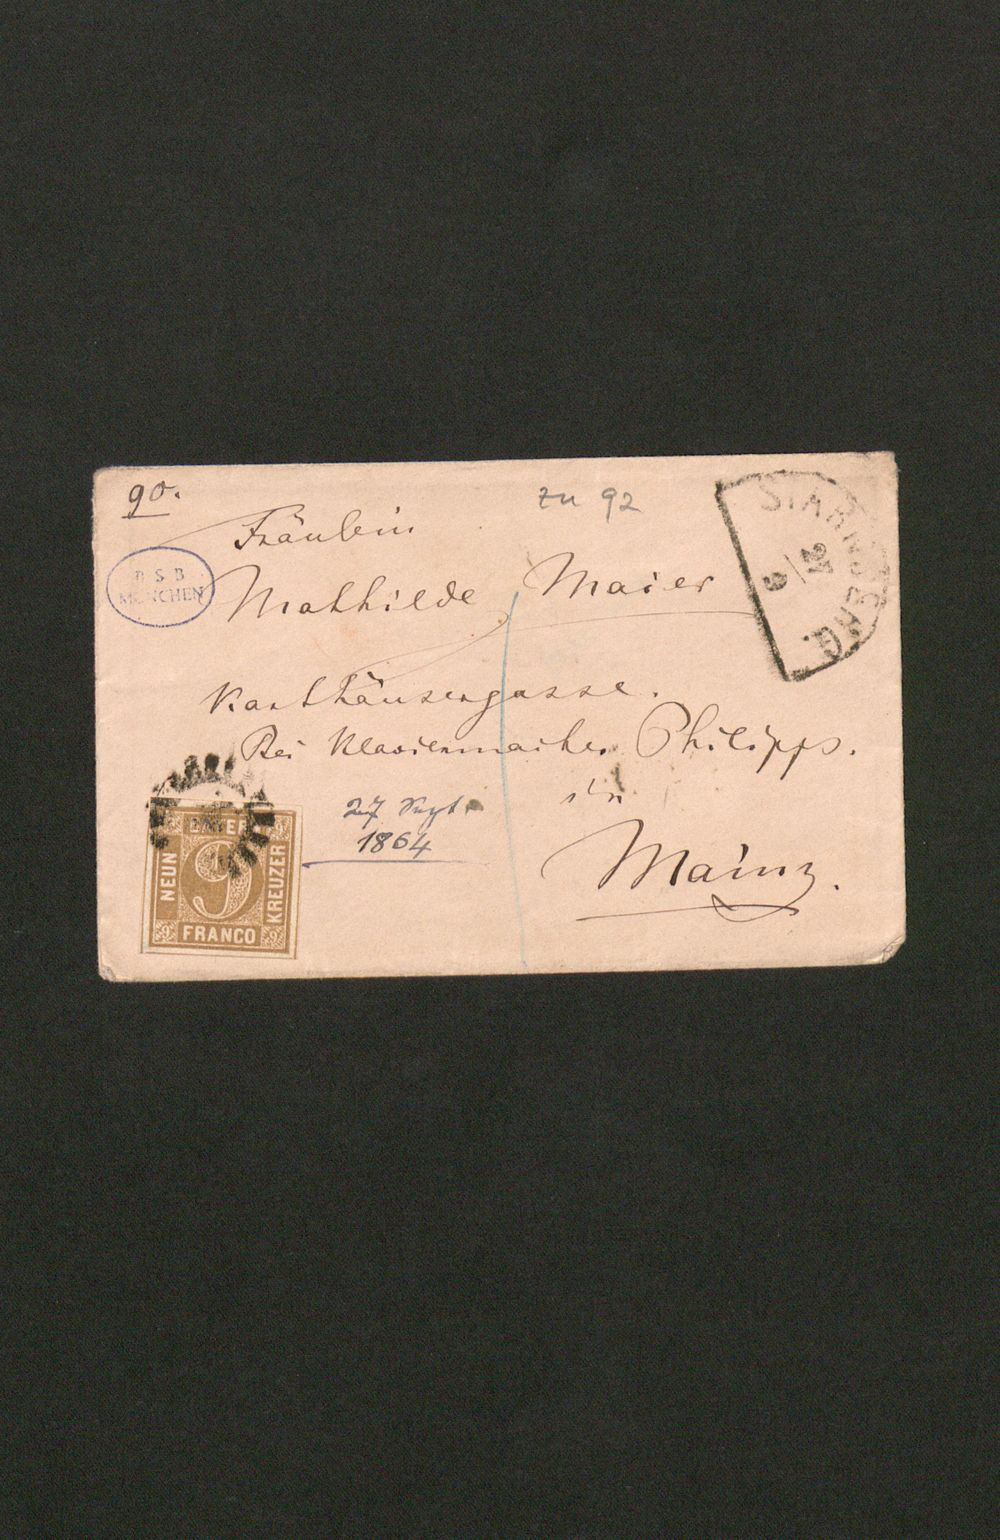 90.
zu 92
STARNBERG.
27/9
Fräulein
B S B
MÜNCHEN
Mathilde Maier
Karthäusergasse.
Bei Klaviermacher Philipps.
in
27 Sept.
1864
Mainz.
BAYERN
NEUN
9
KREUZER
FRANCO
9
9